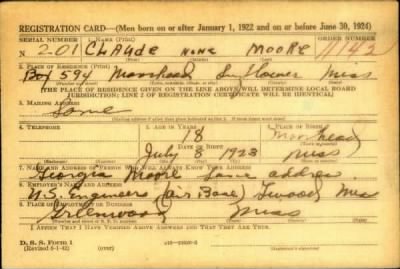 REGISTRATION CARD—(Men born on or after January 1, 1922 and on or before June 30, 1924)
SERIAL NUMBER 1. NAME (Print) ORDER NUMBER
N 201 CLAUDE NONE MOORE 11142
2. PLACE OF RESIDENCE (Print)
Box 594 Moorhead Sunflower Miss
[THE PLACE OF RESIDENCE GIVEN ON THE LINE ABOVE WILL DETERMINE LOCAL BOARD
JURISDICTION; LINE 2 OF REGISTRATION CERTIFICATE WILL BE IDENTICAL]
3. MAILING ADDRESS
Same
4. TELEPHONE 5. AGE IN YEARS 6. PLACE OF BIRTH
18 Moorhead
DATE OF BIRTH
July 8 1923 Miss
7. NAME AND ADDRESS OF PERSON WHO WILL ALWAYS KNOW YOUR ADDRESS
Georgia Moore Same address
8. EMPLOYER'S NAME AND ADDRESS
U.S. Engineers (Air Base) Miss
9. PLACE OF EMPLOYMENT OR BUSINESS
Greenwood Miss
I AFFIRM THAT I HAVE VERIFIED ABOVE ANSWERS AND THAT THEY ARE TRUE.
D. S. S. Form 1
(Revised 6-1-42)